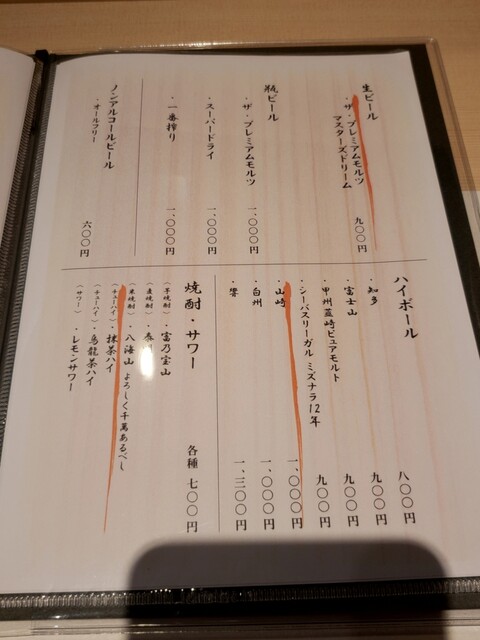 生ビール
・ザ・プレミアムモルツ
マスターズドリーム 九〇〇円
瓶ビール
・ザ・プレミアムモルツ 一、〇〇〇円
・スーパードライ 一、〇〇〇円
・一番搾り 一、〇〇〇円
ノンアルコールビール
・オールフリー 六〇〇円
ハイボール
・知多 八〇〇円
・富士山 九〇〇円
・甲州韮崎ピュアモルト 九〇〇円
・シーバスリーガル ミズナラ12年 九〇〇円
・山崎 一、〇〇〇円
・白州 一、〇〇〇円
・響 一、三〇〇円
焼酎・サワー 各種 七〇〇円
(芋焼酎)・富乃宝山
(麦焼酎)・
(米焼酎)・八海山 よろしく千萬あるべし
(チューハイ)・抹茶ハイ
(チューハイ)・烏龍茶ハイ
(サワー)・レモンサワー